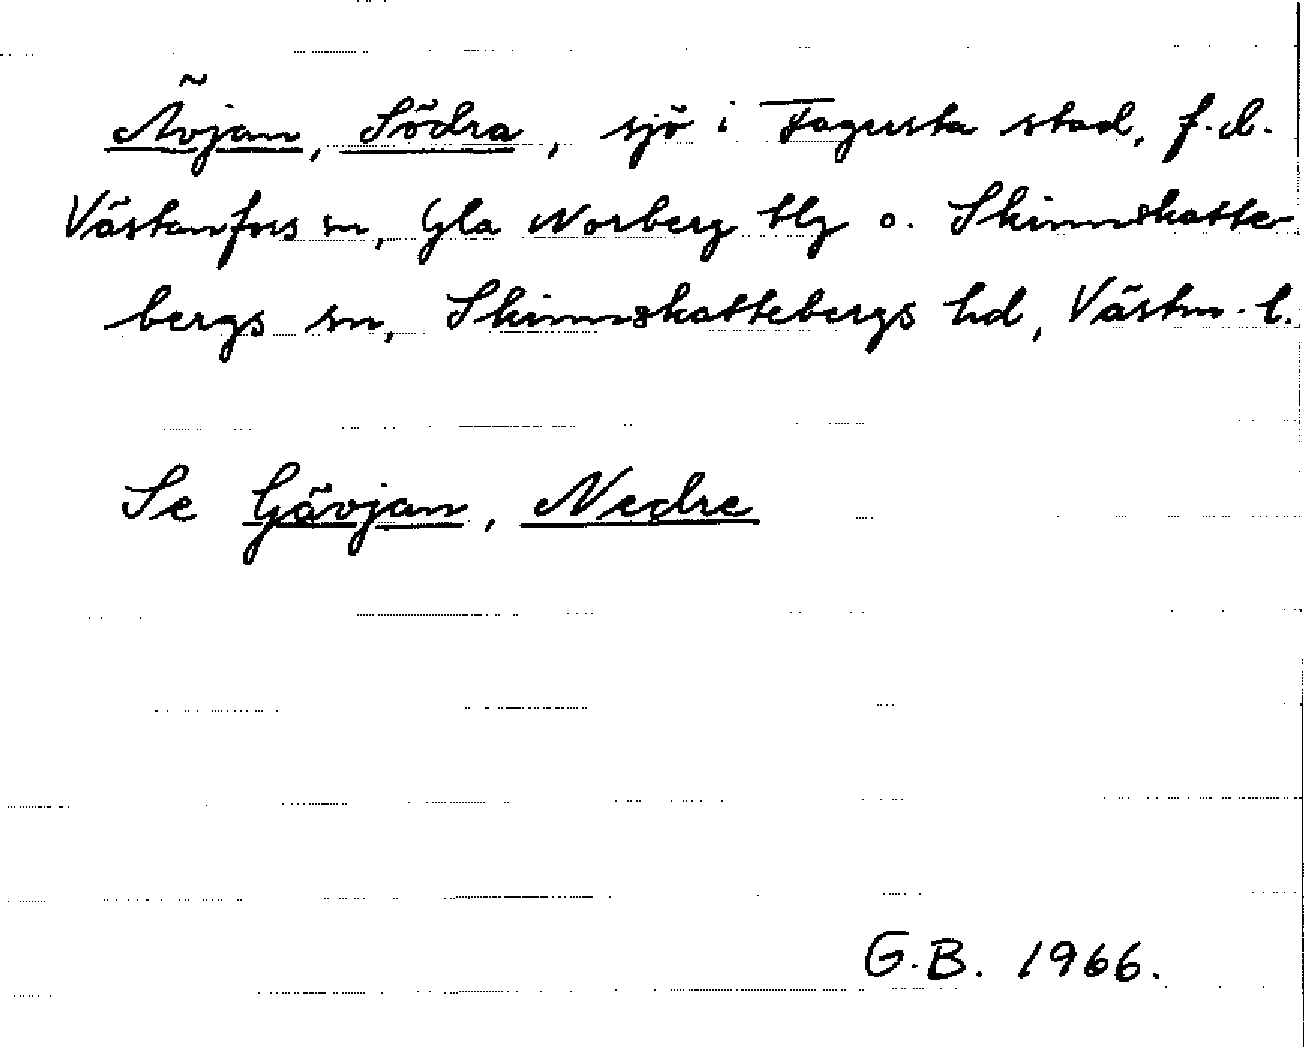 Ävjan, Södra, sjö i Fagersta stad, f.d.
Västanfors sn, Gla Norberg blg o. Skinnskatte-
bergs sn, Skinnskattebergs hd, Västm. l.
Se Gävjan, Nedre
G.B. 1966.